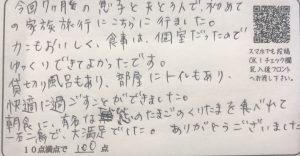 今回1才7ヶ月の息子と夫と3人で初めて
の家族旅行にこちらに行ました。
カニもおいしく、食事は、個室だったので
ゆっくりできてよかったです。
貸切り風呂もあり、部屋にトイレもあり、
快適に過ごすことができました。
朝食に、有名な のたまごのくりたまを食べれて
一石二鳥で、大満足でした。 ありがとうございました
10点満点で 100 点
スマホでも投稿
OK!チェック欄
記入後フロント
へお渡し下さい。